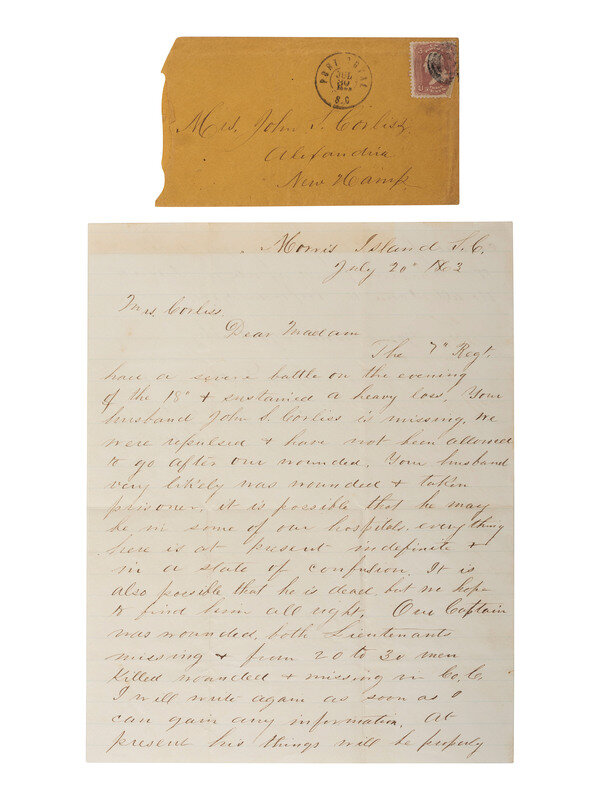 PORT ROYAL
JUL
30
1863
S.C
Mrs. John S. Corliss
Alexandria
New Hamp
Morris Island S.C.
July 20" 1863
Mrs. Corliss
Dear Madam
The 7" Regt.
have a severe battle on the evening
of the 18" & sustained a heavy loss. Your
husband John S. Corliss is missing, we
were repulsed & have not been allowed
to go after our wounded. Your husband
very likely was wounded & taken
prisoner, it is possible that he may
be in some of our hospitals, everything
here is at present indefinite &
in a state of confusion. It is
also possible that he is dead, but we hope
to find him all right. Our Captain
was wounded, both Lieutenants
missing & from 20 to 30 men
killed wounded & missing in Co. C.
I will write again as soon as I
can gain any information. At
present his things will be properly